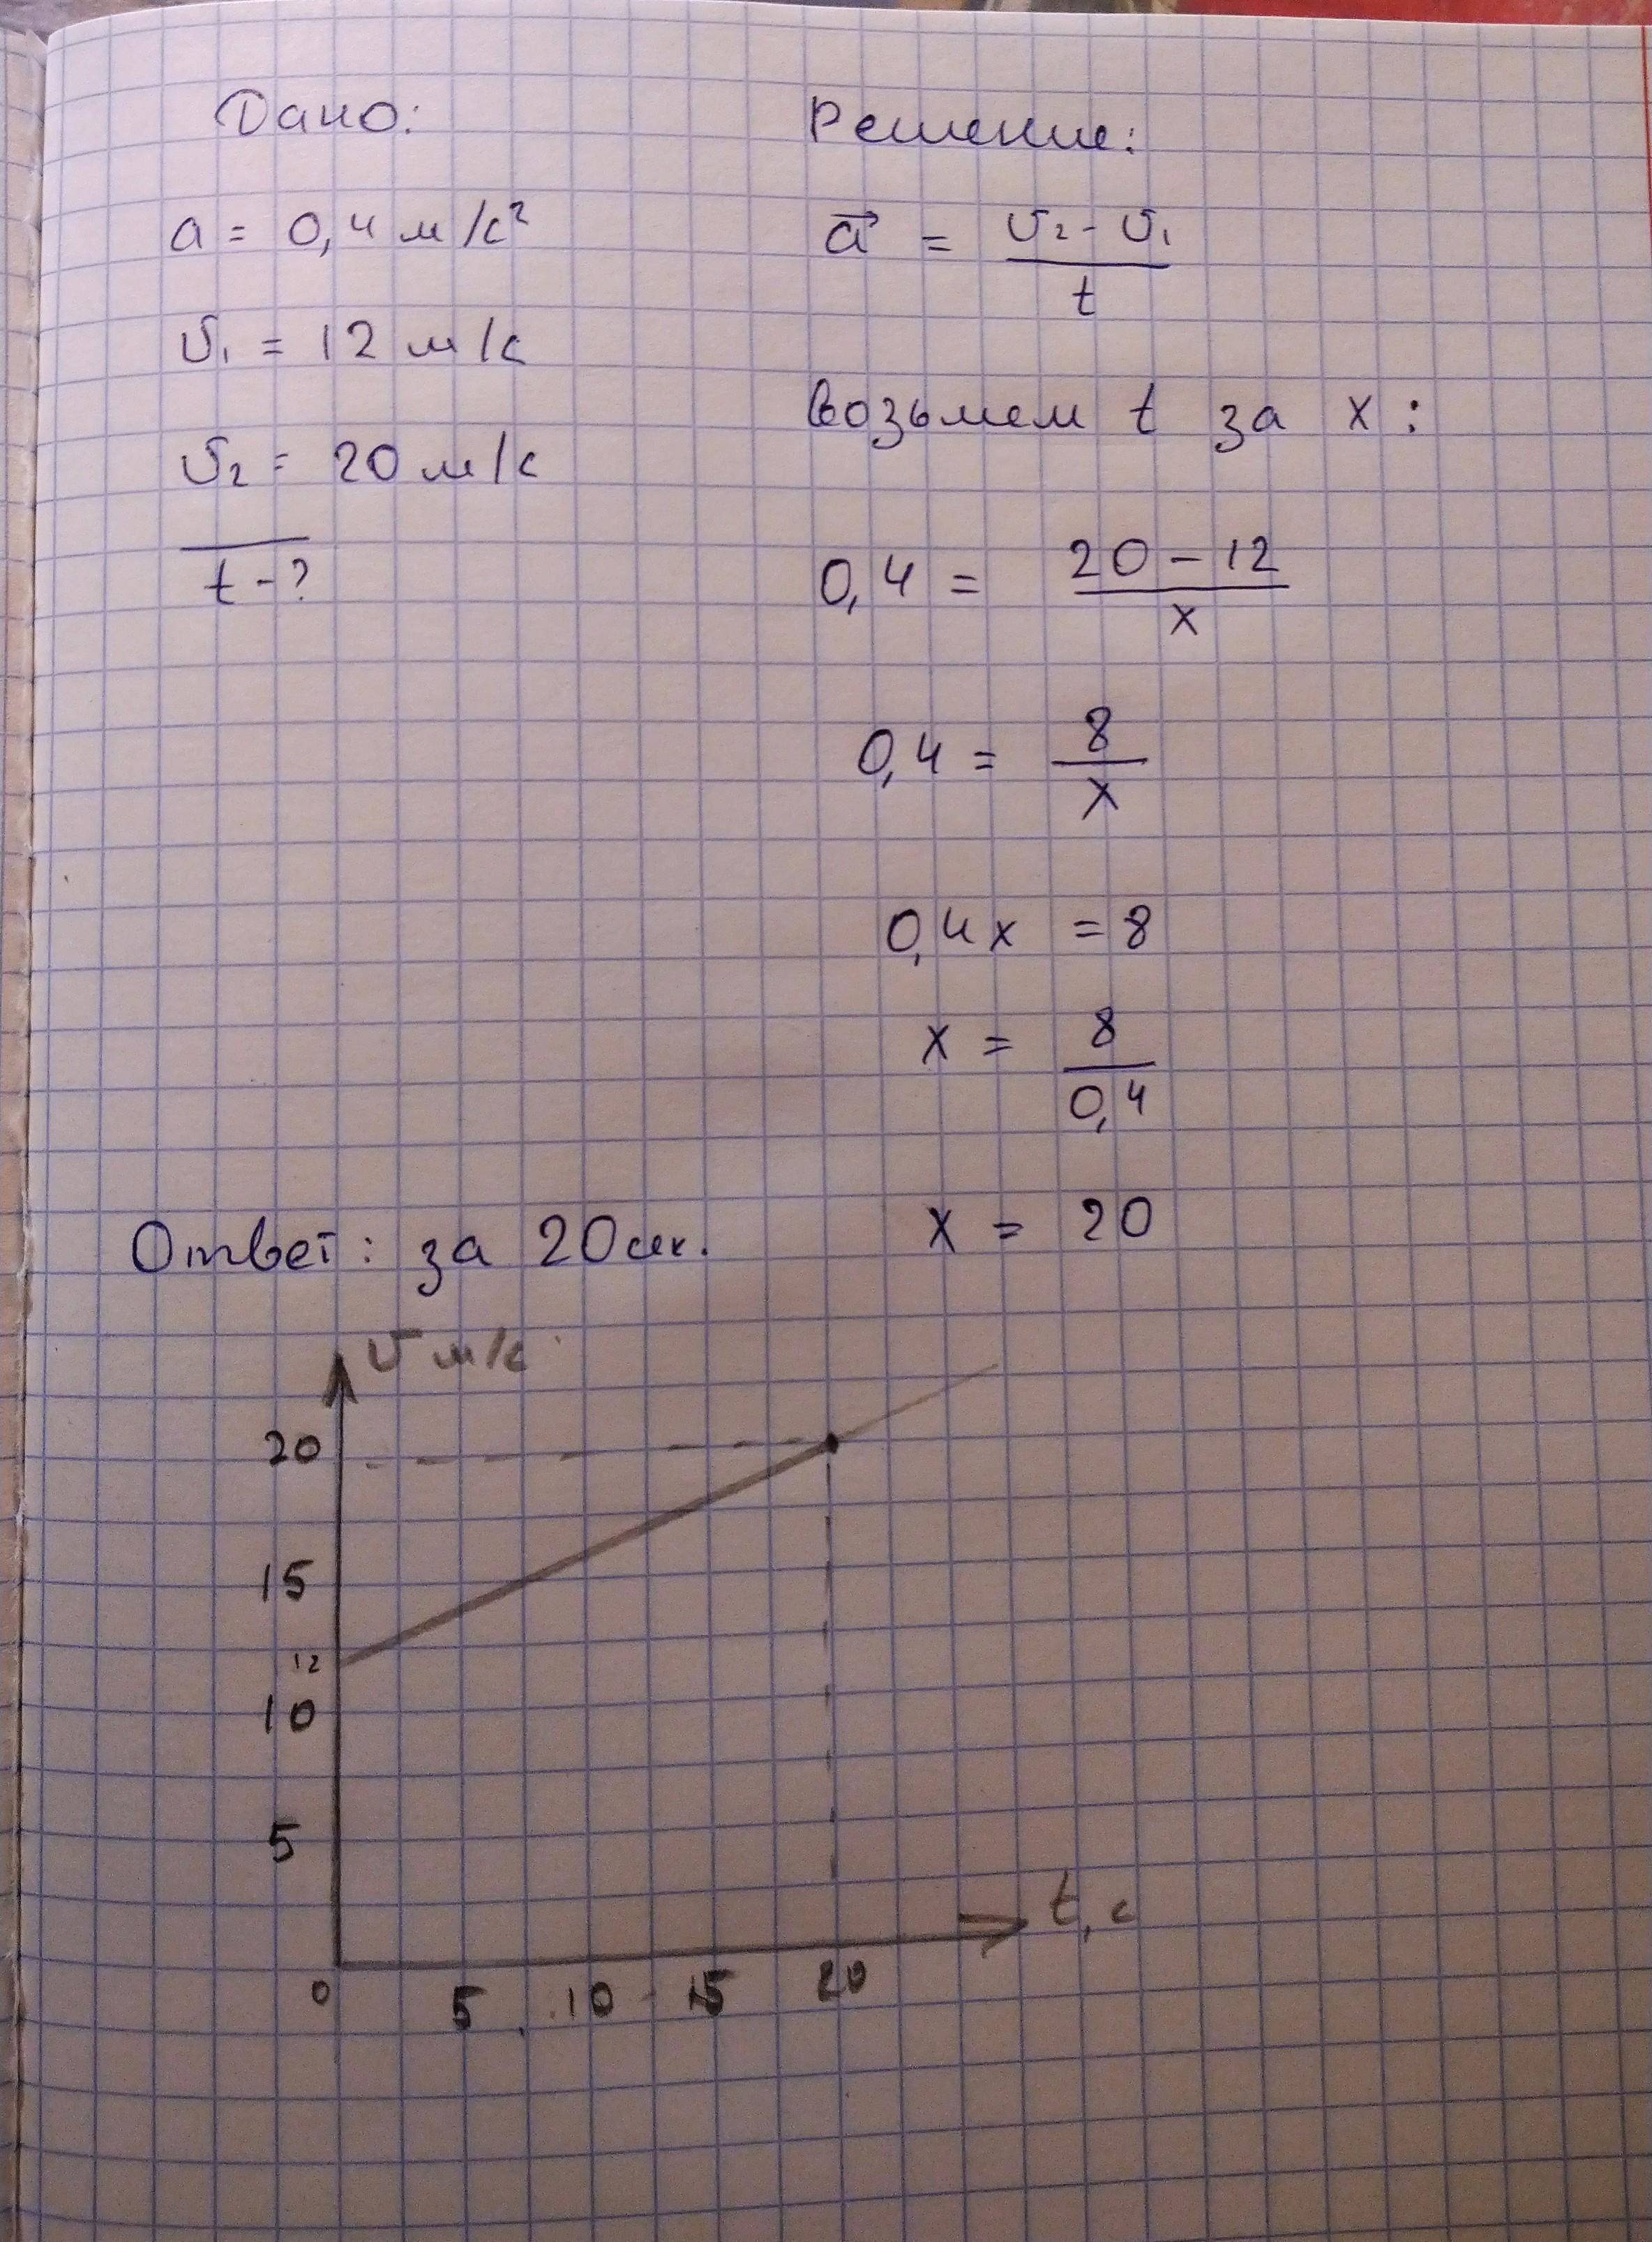 Дано:
a = 0,4 м/с²
υ₁ = 12 м/с
υ₂ = 20 м/с
t - ?
Решение:
a⃗ = (υ₂ - υ₁) / t
возьмем t за x:
0,4 = (20 - 12) / x
0,4 = 8 / x
0,4x = 8
x = 8 / 0,4
x = 20
Ответ: за 20 сек.
υ м/с
20
15
12
10
5
0 5 10 15 20
t, с